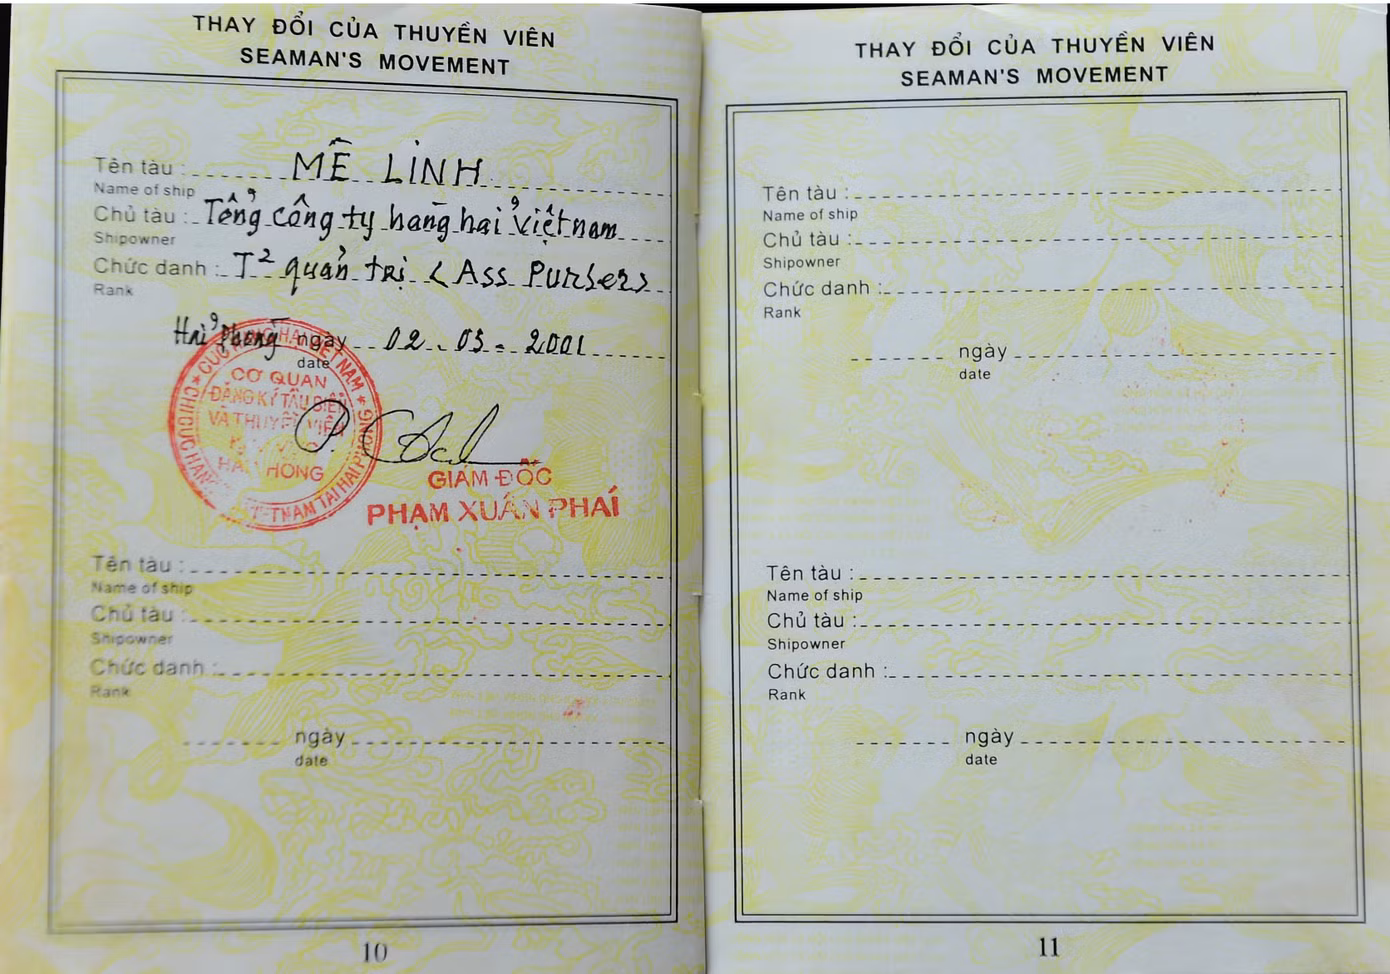 THAY ĐỔI CỦA THUYỀN VIÊN
SEAMAN'S MOVEMENT
Tên tàu : MÊ LINH
Name of ship
Chủ tàu : Tổng công ty hàng hải việt nam
Shipowner
Chức danh : T² quản trị (Ass Purser)
Rank
Hải phòng ngày 02 . 03 - 2001
date
CƠ QUAN
ĐĂNG KÝ TÀU BIỂN
VÀ THUYỀN VIÊN
GIÁM ĐỐC
PHẠM XUÂN PHÁI
Tên tàu :
Name of ship
Chủ tàu :
Shipowner
Chức danh :
Rank
ngày
date
10
THAY ĐỔI CỦA THUYỀN VIÊN
SEAMAN'S MOVEMENT
Tên tàu :
Name of ship
Chủ tàu :
Shipowner
Chức danh :
Rank
ngày
date
Tên tàu :
Name of ship
Chủ tàu :
Shipowner
Chức danh :
Rank
ngày
date
11